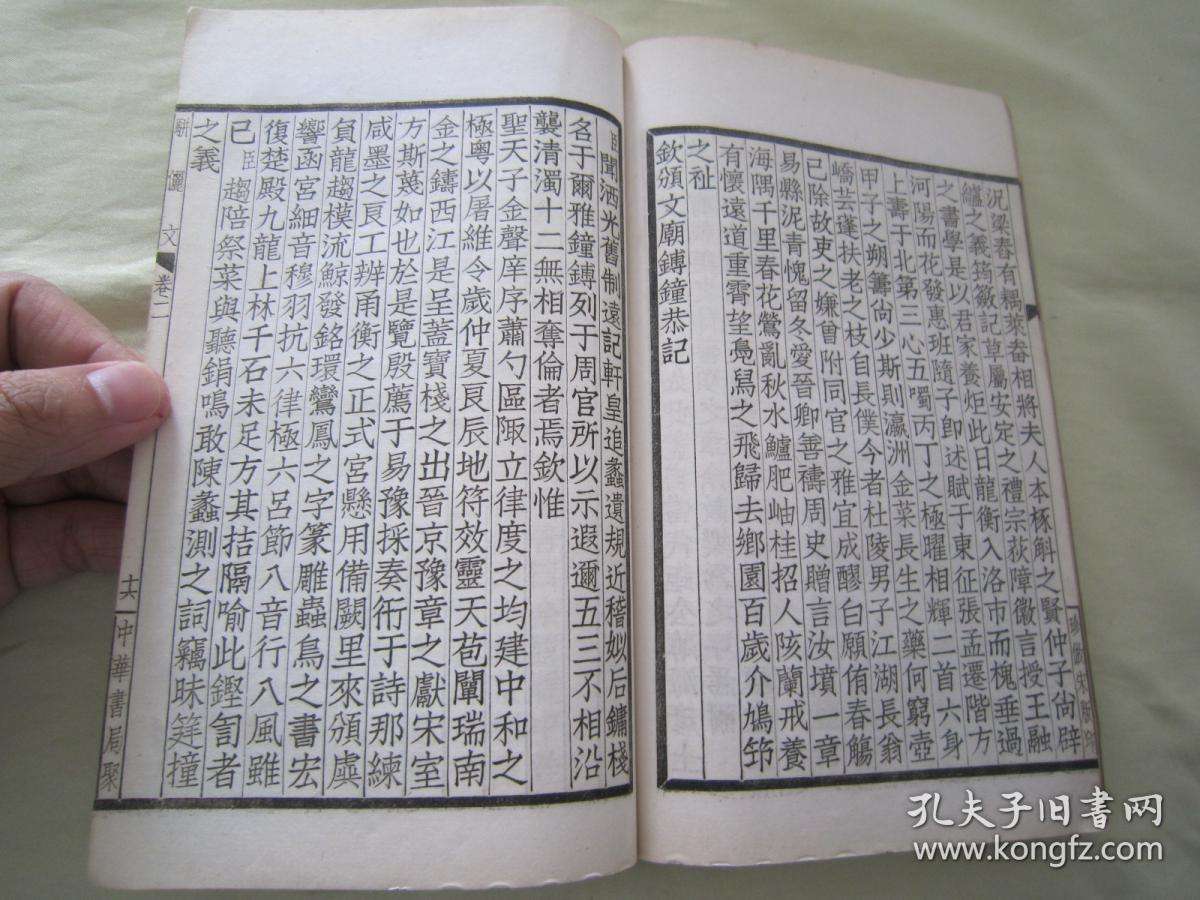 況梁舂有耦萊畚相將夫人本極斛之賢仲子尙辟
纑之義摛黻記草屬安定之禮宗荻障徽言授王融
之書學是以君家養炬此日龍衡入洛市而槐垂過
河陽而花發惠班隨子卽述賦于東征張孟遷階方
上壽于北第三心五噣丙丁之極曜相輝二首六身
甲子之朔籌尙少斯則瀛洲金菜長生之藥何窮壺
嶠芸蓬扶老之枝自長僕今者杜陵男子江湖長翁
已除故吏之嫌曾附同官之雅宜成醪白願侑春觴
易縣泥靑愧留冬愛晉卿善禱周史贈言汝墳一章
海隅千里春花鶯亂秋水鱸肥岫桂招人陔蘭戒養
有懷遠道重霄望鳧舃之飛歸去鄕園百歲介鳩笻
之祉
欽頒文廟鎛鐘恭記
臣聞洒光舊制遠記軒皇追蠡遺規近稽姒后鏞棧
名于爾雅鐘鎛列于周官所以示遐邇五三不相沿
襲淸濁十二無相奪倫者焉欽惟
聖天子金聲庠序蕭勺區陬立律度之均建中和之
極粵以屠維令歲仲夏良辰地符效靈天苞闡瑞南
金之鑄西江是呈蓋寶棧之出晉京豫章之獻宋室
方斯蔑如也於是覽殷薦于易豫採奏衎于詩那練
咸墨之良工辨甬衡之正式宮懸用備闕里來頒虡
負龍趨模流鯨發銘環鸞鳳之字篆雕蟲鳥之書宏
響函宮細音穆羽抗六律極六呂節八音行八風雖
復楚殿九龍上林千石未足方其拮隔喻此鏗訇者
已臣趨陪祭菜與聽鋗鳴敢陳蠡測之詞竊昧筳撞
之義
騈儷文 卷二
十六 中華書局聚
珍倣宋版印
孔夫子旧书网
www.kongfz.com